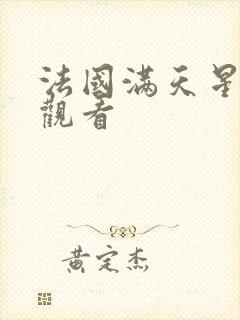 法國滿天星
觀看
黃定杰